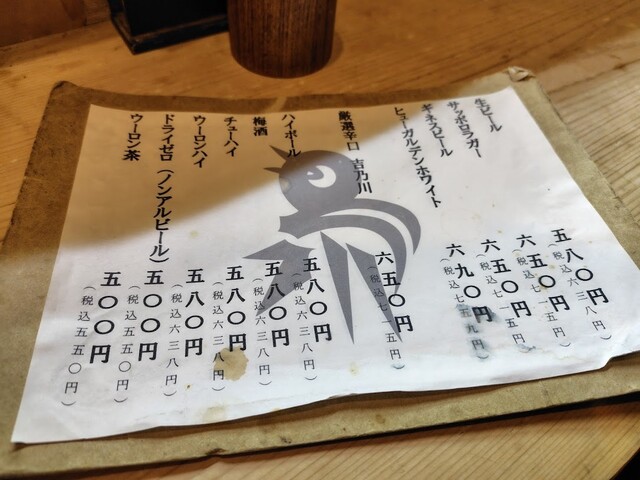 生ビール 五八〇円
サッポロラガー 六五〇円
（税込七一五円）
ギネスビール 六五〇円
（税込七一五円）
ヒューガルデンホワイト 六九〇円
（税込七五九円）
厳選辛口 吉乃川 六五〇円
（税込七一五円）
ハイボール 五八〇円
（税込六三八円）
梅酒 五八〇円
（税込六三八円）
チューハイ 五八〇円
（税込六三八円）
ウーロンハイ 五八〇円
（税込六三八円）
ドライゼロ（ノンアルビール） 五〇〇円
（税込五五〇円）
ウーロン茶 五〇〇円
（税込五五〇円）